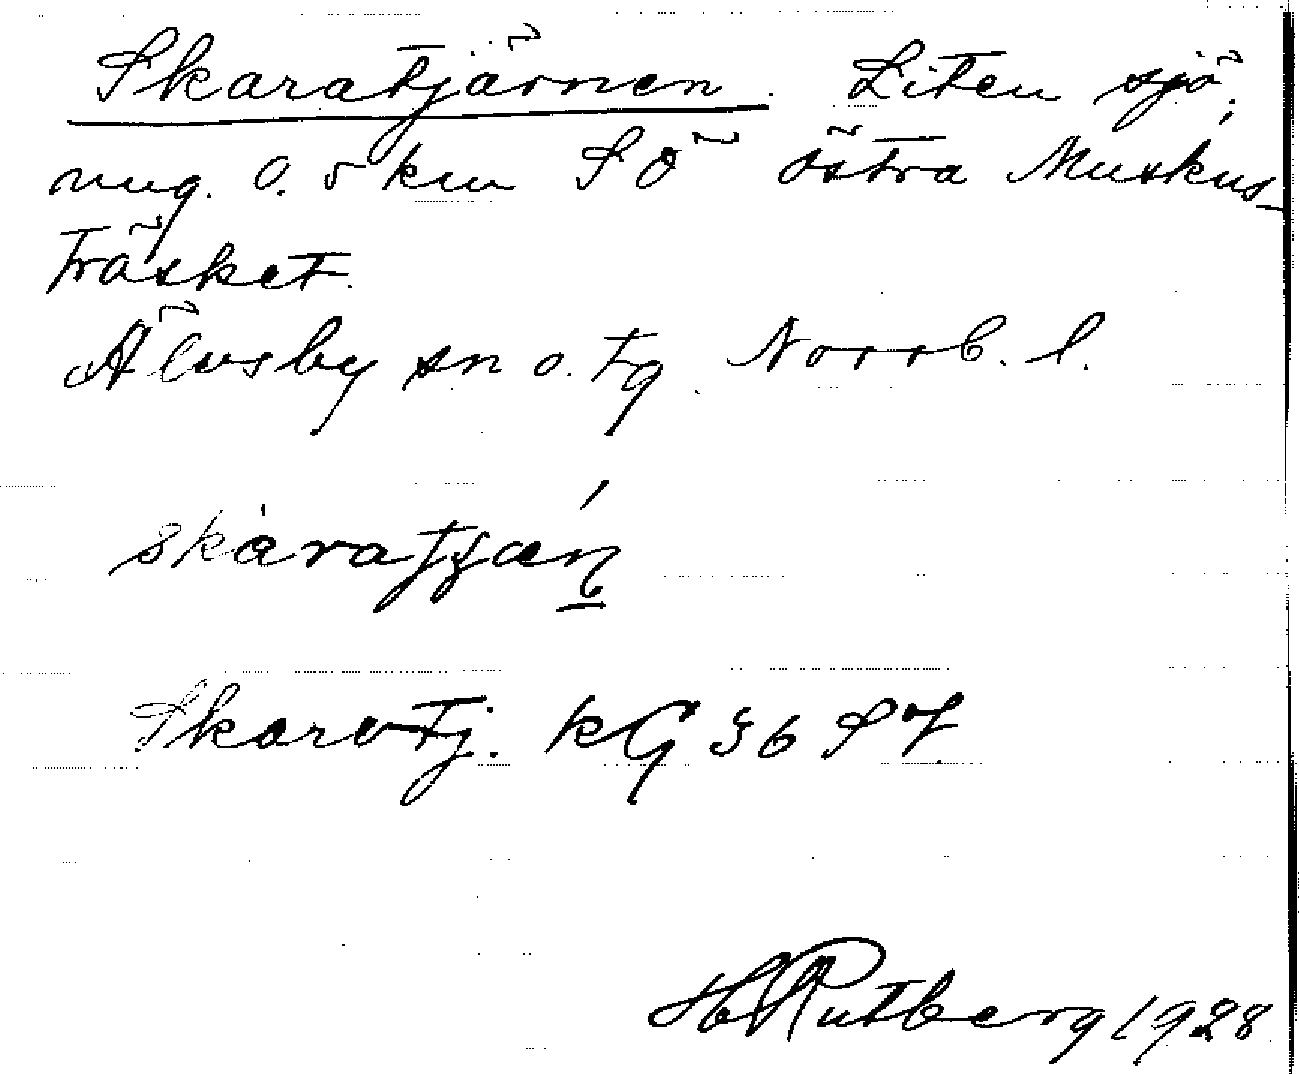 Skaratjärnen. Liten sjö,
ung. 0.5 km SÖ östra Muskus-
träsket.
Älvsby sn o. tg. Norrb. l.
Skaratj. KG 36 SV
H Rutberg 1928